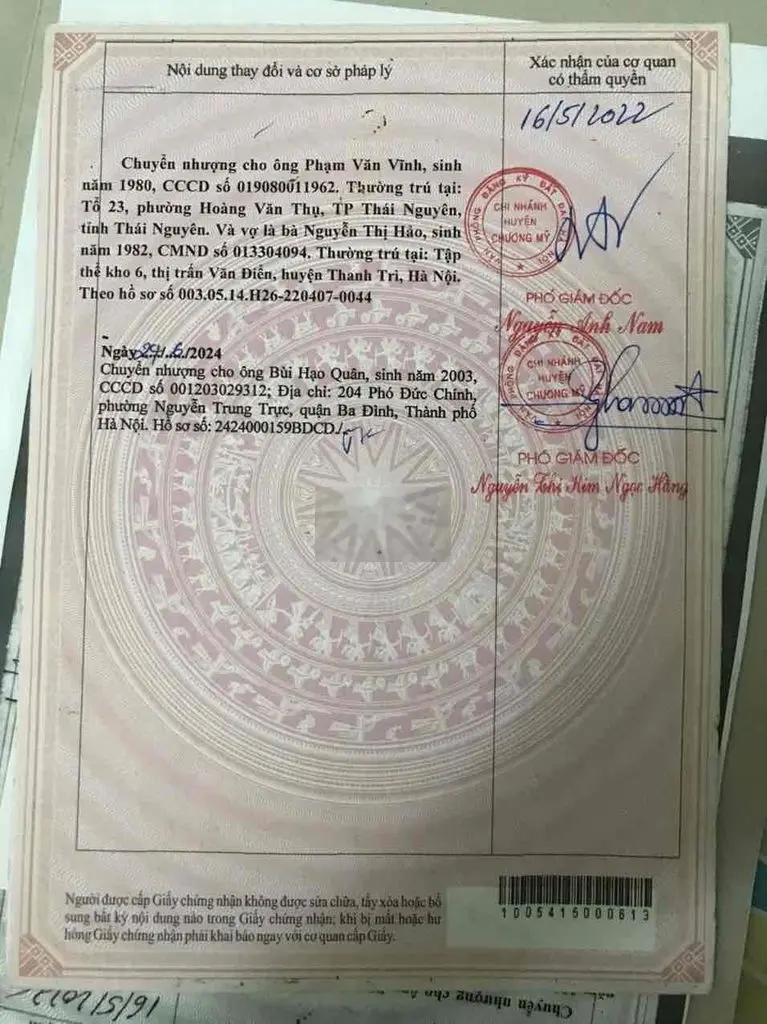 Nội dung thay đổi và cơ sở pháp lý
Xác nhận của cơ quan
có thẩm quyền
16/5/2022
Chuyển nhượng cho ông Phạm Văn Vĩnh, sinh
năm 1980, CCCD số 019080011962. Thường trú tại:
Tổ 23, phường Hoàng Văn Thụ, TP Thái Nguyên,
tỉnh Thái Nguyên. Và vợ là bà Nguyễn Thị Hảo, sinh
năm 1982, CMND số 013304094. Thường trú tại: Tập
thể kho 6, thị trấn Văn Điển, huyện Thanh Trì, Hà Nội.
Theo hồ sơ số 003.05.14.H26-220407-0044
VĂN PHÒNG ĐĂNG KÝ ĐẤT ĐAI HÀ NỘI
CHI NHÁNH
HUYỆN
CHƯƠNG MỸ
PHÓ GIÁM ĐỐC
Nguyễn Anh Nam
Ngày /2024
Chuyển nhượng cho ông Bùi Hạo Quân, sinh năm 2003,
CCCD số 001203029312; Địa chỉ: 204 Phó Đức Chính,
phường Nguyễn Trung Trực, quận Ba Đình, Thành phố
Hà Nội. Hồ sơ số: 2424000159BDCD./
VĂN PHÒNG ĐĂNG KÝ ĐẤT ĐAI HÀ NỘI
CHI NHÁNH
HUYỆN
CHƯƠNG MỸ
PHÓ GIÁM ĐỐC
Nguyễn Thị Kim Ngọc Hằng
Người được cấp Giấy chứng nhận không được sửa chữa, tẩy xóa hoặc bổ
sung bất kỳ nội dung nào trong Giấy chứng nhận; khi bị mất hoặc hư
hỏng Giấy chứng nhận phải khai báo ngay với cơ quan cấp Giấy.
1005415000613
16/5/2022
Chuyển nhượng cho